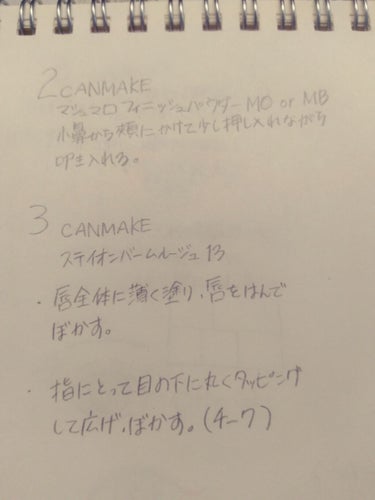 2 CANMAKE
マシュマロフィニッシュパウダー MO or MB
小鼻から頬にかけて少し押し入れながら
叩き入れる。
3 CANMAKE
ステイオンバームルージュ 13
・唇全体に薄く塗り、唇をはんで
ぼかす。
・指にとって目の下に丸くタッピング
して広げ、ぼかす。(チーク)